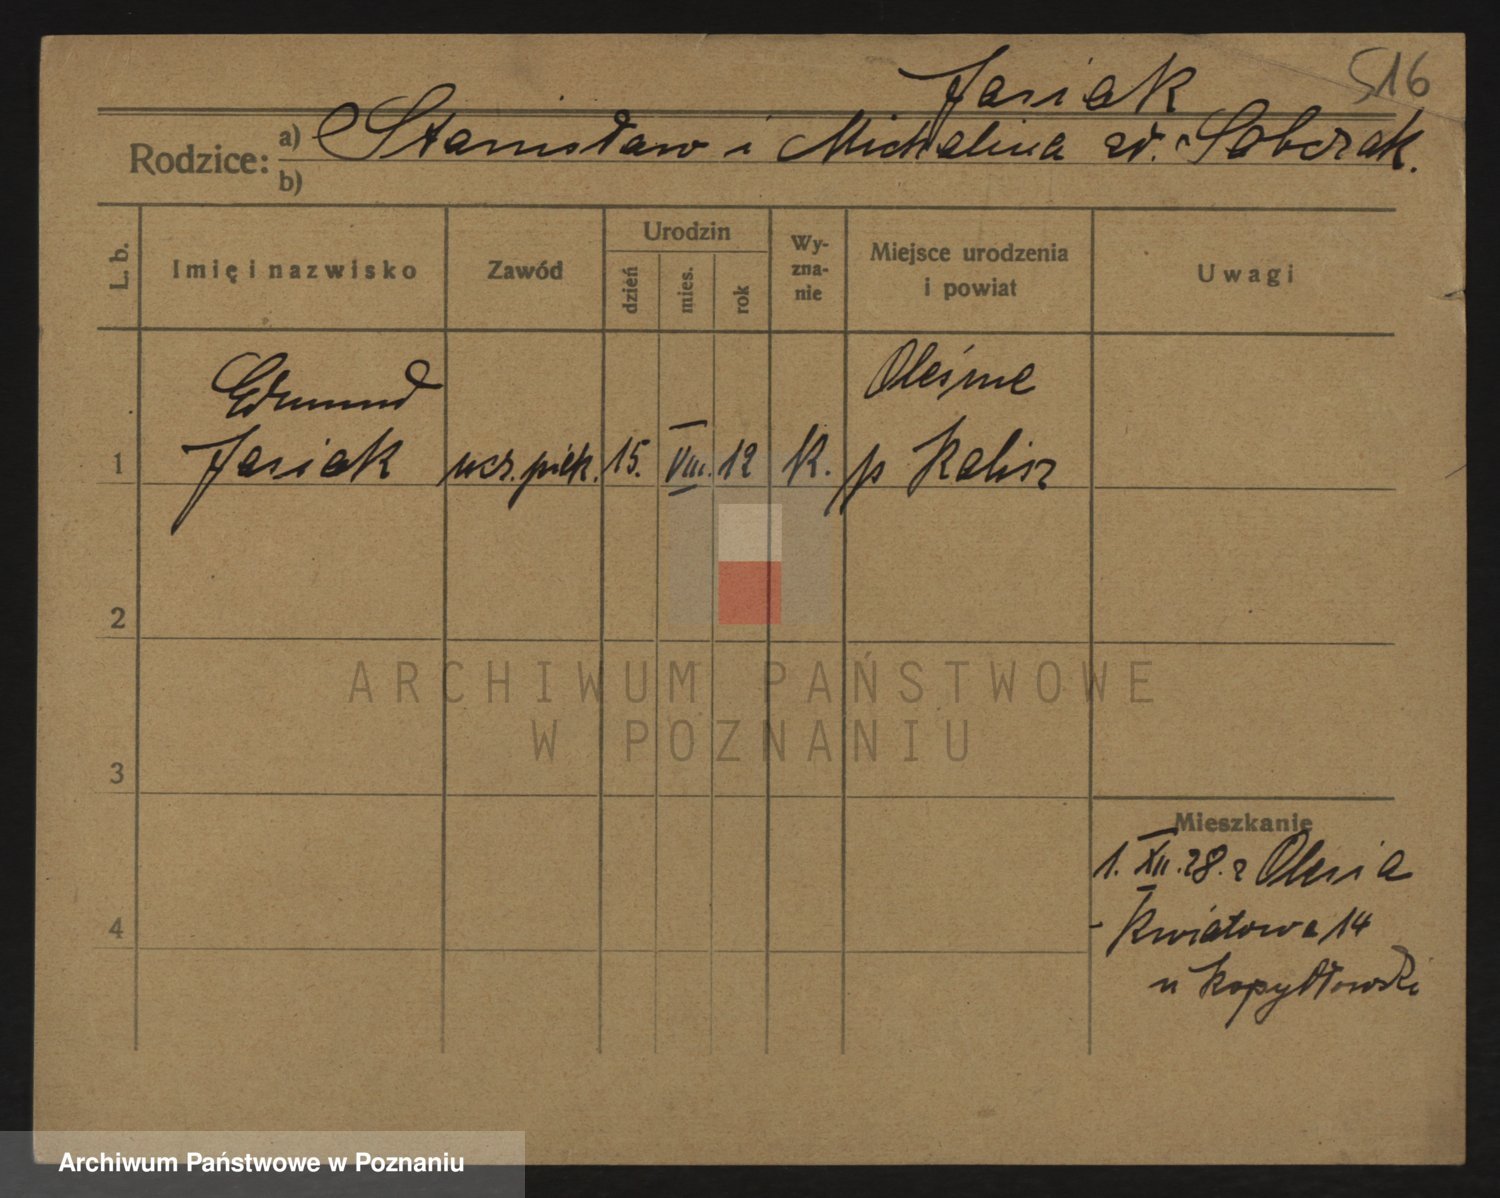 516
Jasiak
Rodzice: a) Stanisław i Michalina zd. Sobczak.
b)
L. b. Imię i nazwisko Zawód Urodzin dzień mies. rok Wyznanie Miejsce urodzenia i powiat Uwagi
Edmund Oleśne
1 Jasiak ucz. piek. 15. VIII. 12 K. p Kalisz
2
ARCHIWUM PAŃSTWOWE
W POZNANIU
3
Mieszkanie
1. XII. 28. z
4 Kwiatowa 14
u Kopydłowski
Archiwum Państwowe w Poznaniu